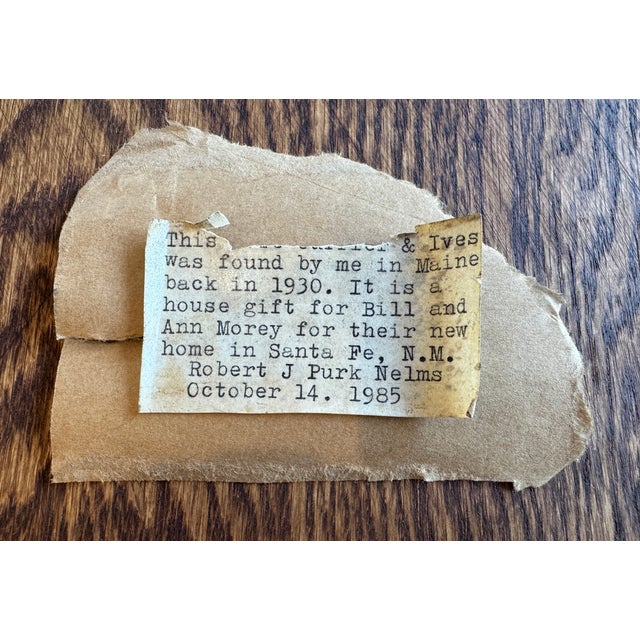 This Currier & Ives
was found by me in Maine
back in 1930. It is a
house gift for Bill and
Ann Morey for their new
home in Santa Fe, N.M.
Robert J Purk Nelms
October 14. 1985